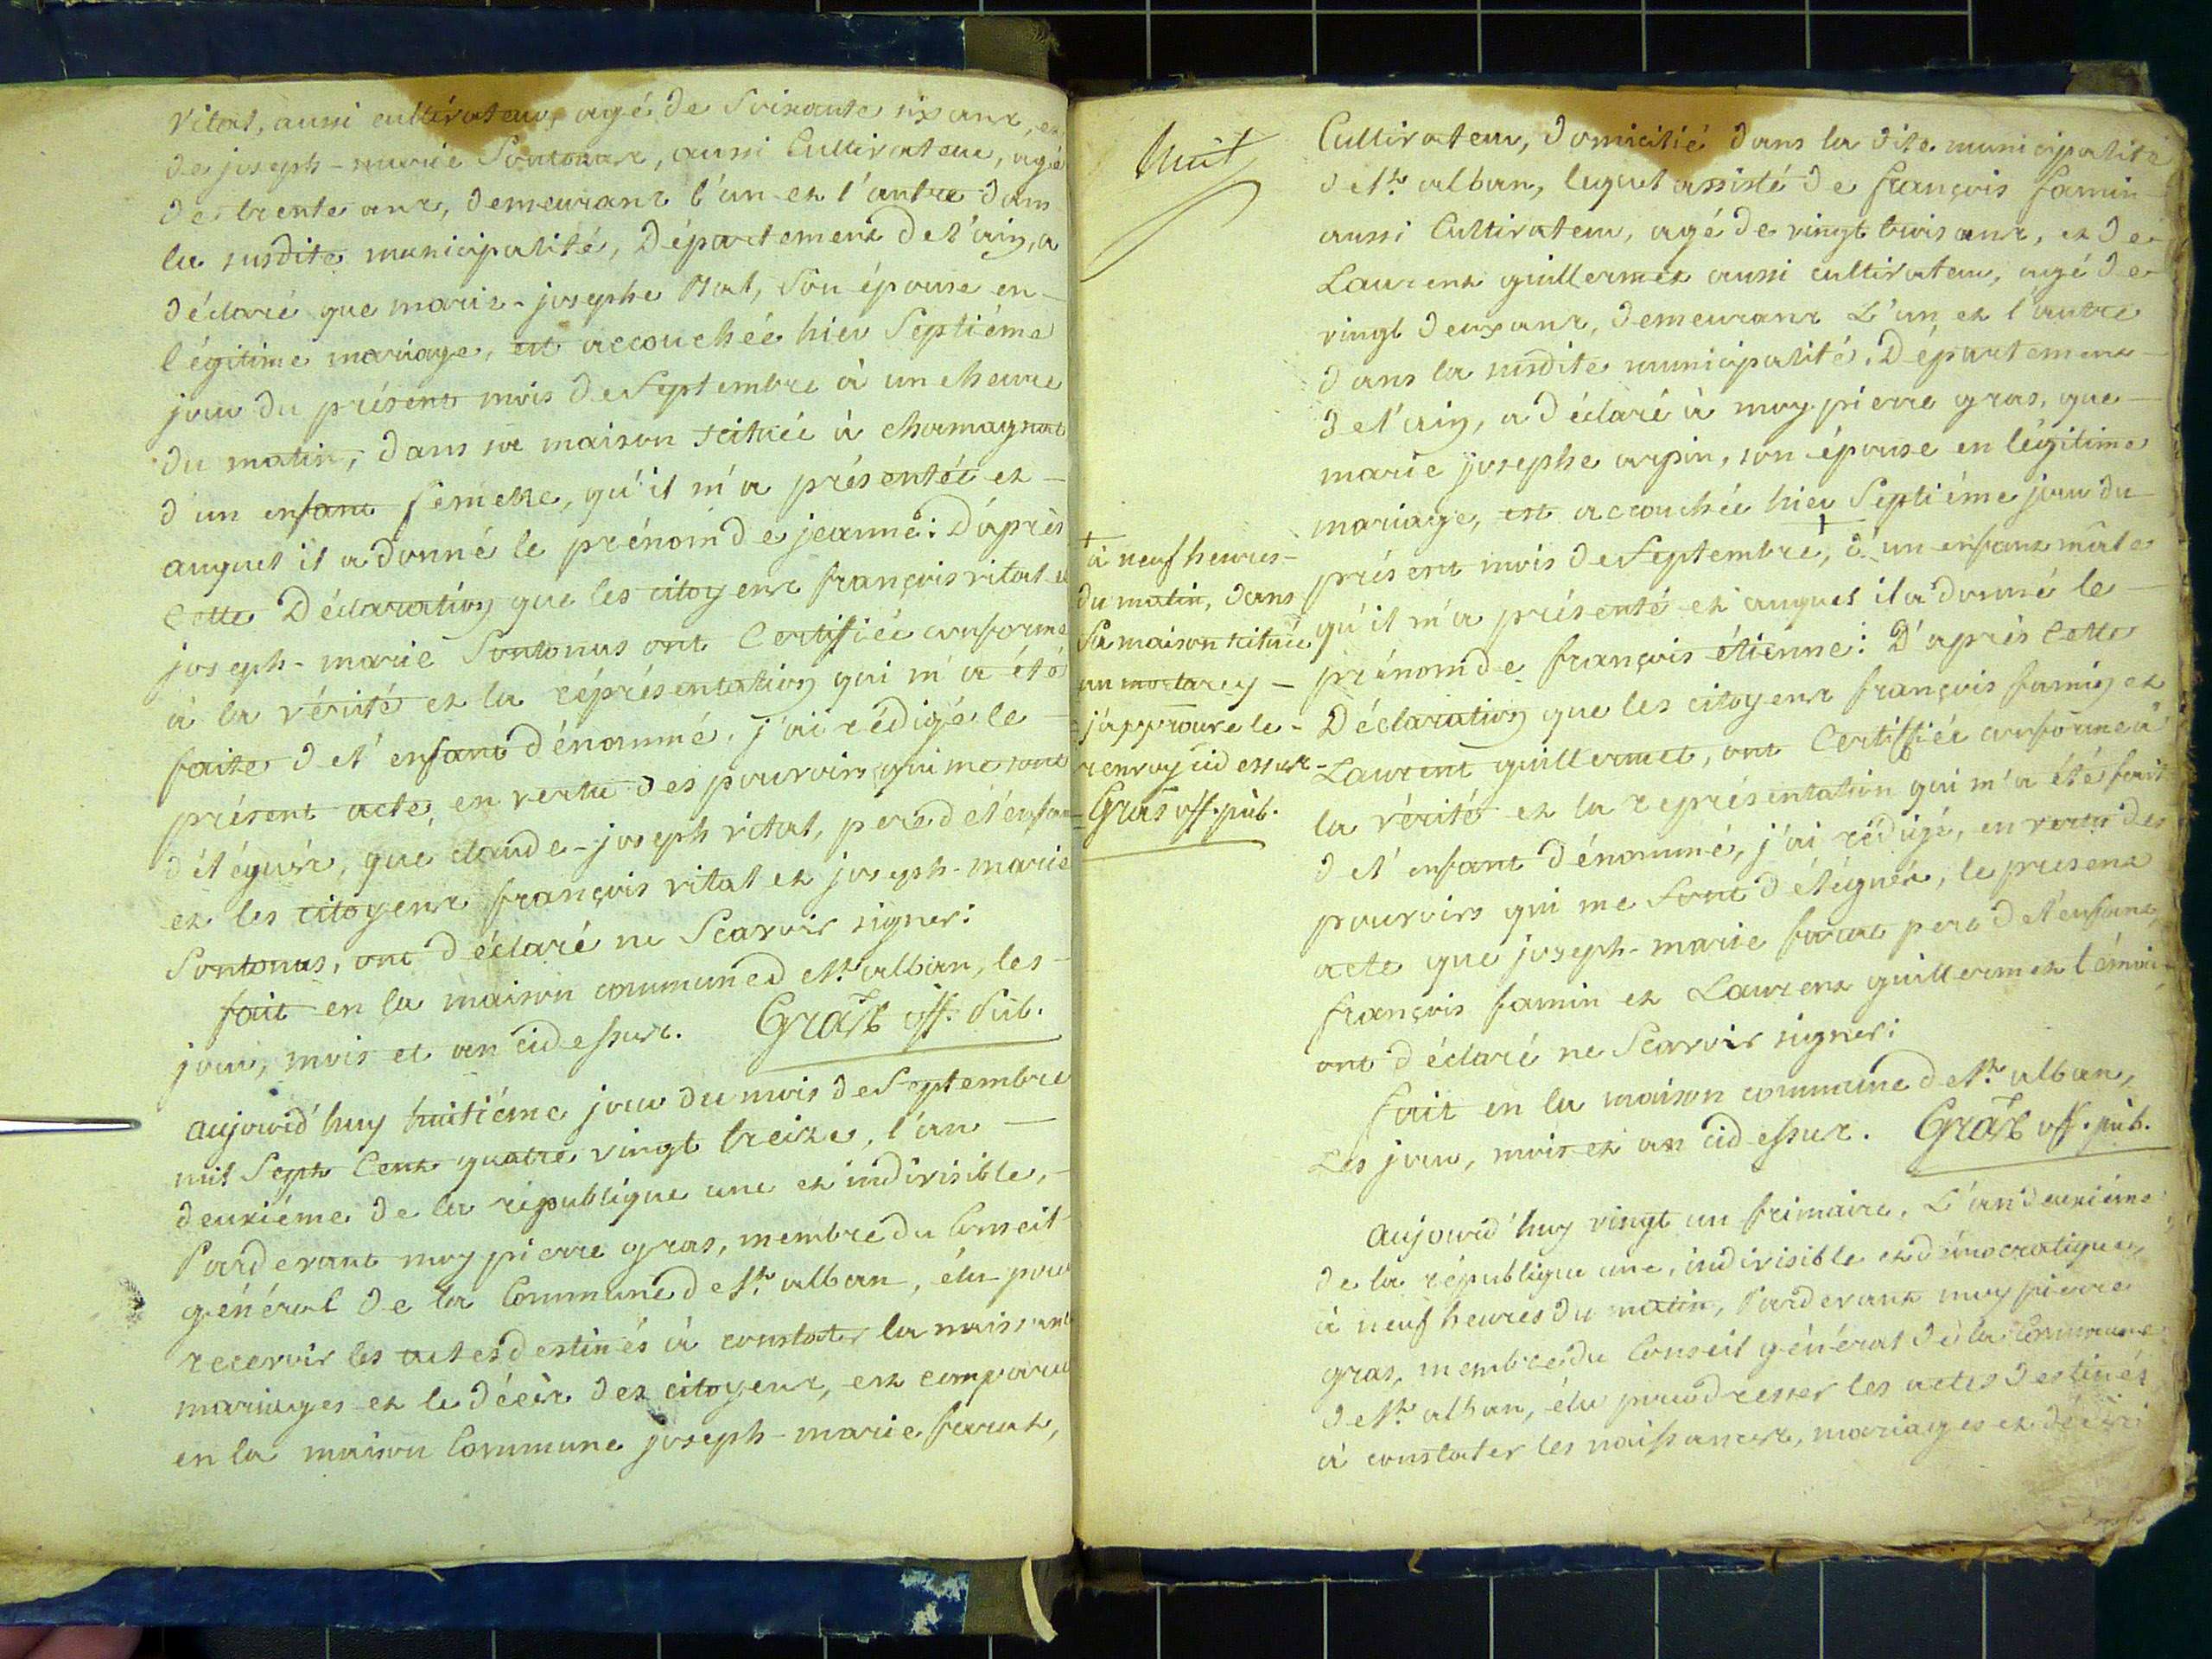 vital, aussi cultivateur, agé de Soixante six ans, et
de joseph-marie Sontonas, aussi Cultivateur, agé
de trente ans, demeurant l'un et l'autre dans
la susdite municipalité, Département de l'ain, a
déclaré que marie-josephe, Son épouse en-
légitime mariage, est accouchée hier Septiéme
jour du présent mois de Septembre à une heure
du matin, dans sa maison scituée à chamagnat
d'un enfant femelle, qu'il m'a présentée et-
auquel il a donné le prénom de jeanne: D'après
Cette Déclaration que les citoyens françois vital et
joseph-marie Sontonas ont Certiffiée conforme
à la vérité et la réprésentation qui m'a été
faite de l'enfant dénommé, j'ai rédigé le-
présent acte, en vertu des pouvoirs qui me sont
délégués, que claude-joseph vital, pere de l'enfant
et les citoyens françois vital et joseph-marie
Sontonas, ont déclaré ne Scavoir signer:
fait en la maison commune de St. alban, les-
jour, mois et an cidessus. Gras off. Pub.
aujourd'huy huitiéme jour du mois de Septembre
mil Sept Cent quatre vingt treize, l'an-
deuxiéme de la république une et indivisible,-
Pardevant moy pierre gras, membre du Conseil
général de la Commune de St. alban, élu pour
recevoir les actes destinés à constater la naissance
mariages et le décès des citoyens, est comparu
en la maison Commune joseph-marie farat,
huit
Cultivateur, domicilié dans la dite municipalité
de St. alban, lequel assisté de françois famin
aussi Cultivateur, agé de vingt trois ans, et de-
Laurent guillermet aussi cultivateur, agé de-
vingt deux ans, demeurant L'un et l'autre
dans la susdite municipalité, Département-
de l'ain, a déclaré à moy pierre gras, que-
marie josephe arpin, son épouse en légitime
mariage, est accouchée hier Septiéme jour du-
présent mois de Septembre, + d'un enfant mâle
qu'il m'a présenté et auquel il a donné le-
prénom de françois étienne: D'après Cette
Déclaration que les citoyens françois famin et
Laurent guillermet, ont Certiffiée conforme à
la vérité et la représentation qui m'a été fait
de l'enfant dénommé, j'ai rédigé, en vertu des
pouvoirs qui me Sont délégués, le present
acte que joseph-marie farat pere de l'enfant,
françois famin et Laurent guillermet témoins
ont déclaré ne Scavoir signer:
fait en la maison commune de St. alban,
Les jour, mois et an cidessus. Gras off. pub.
+
à neuf heures-
du matin, dans
Sa maison scituée
au mortarey-
j'approuve le-
renvoy cidessus-
Gras off. pub.
aujourd'huy vingt un frimaire, L'an deuxiéme
de la république une, indivisible et démocratique,
à neuf heures du matin, Pardevant moy pierre
gras, membre du Conseil général de la Commune
de St. alban, élu pour dresser les actes destinés
à constater les naissances, mariages et décès